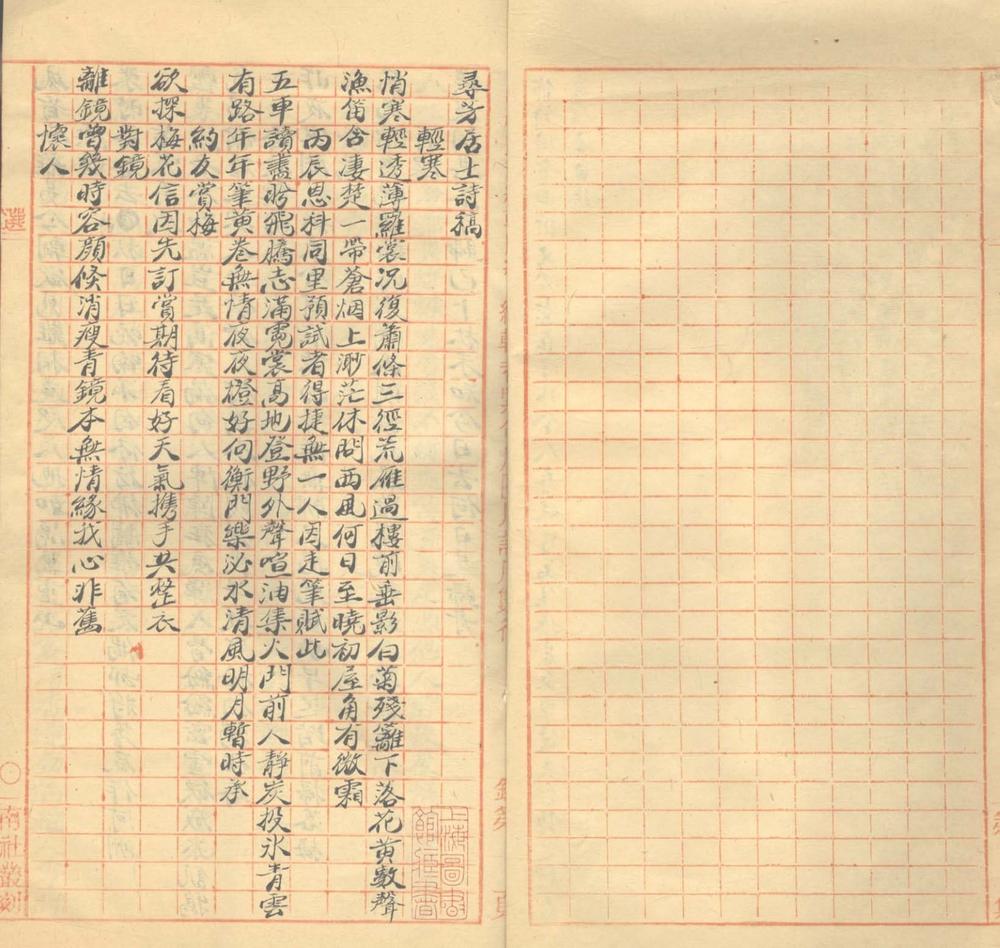 尋芳居士詩稿
輕寒
悄寒輕透薄羅裳况復蕭條三徑荒雁過樓前垂影白菊殘籬下落花黄數聲
漁笛含凄楚一帶蒼烟上渺茫休問西風何日至曉初屋角有微霜
丙辰恩科同里預試者得捷無一人因走筆賦此
五車讀盡盼飛騰志滿霓裳高地登野外聲喧油集火門前人靜炭投氷青雲
有路年年筆黄卷無情夜夜燈好向衡門樂泌水清風明月暫時承
約友賞梅
欲探梅花信因先訂賞期待看好天氣携手共整衣
對鏡
離鏡曾幾時容顔倏消瘦青鏡本無情緣我心非舊
懷人
選
南社叢刻
上海圖書館藏書